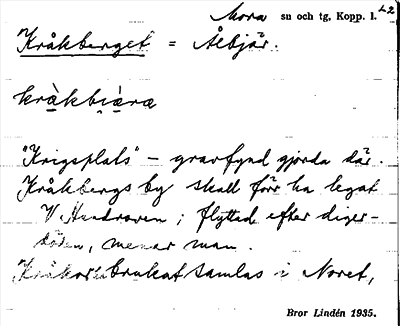 Mora sn och tg, Kopp. l. L2
Kråkberget = Åbjär.
kràkbi̯àra
"Krigsplats" – gravfynd gjorda där.
Kråkbergs by skall förr ha legat
V. ; flyttad efter diger-
döden, menar man.
"Kråkor" brukat samlas i Noret,
Bror Lindén 1935.